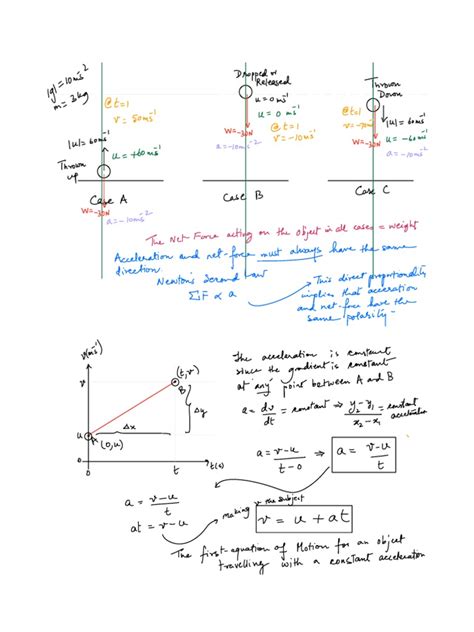 |g|=10ms⁻²
m = 3kg
|u|= 60ms⁻¹
Thrown up
@t=1
v = 50ms⁻¹
u = +60ms⁻¹
Case A
W=-30N
a=-10ms⁻²
Dropped or Released
u = 0 ms⁻¹
u = 0 ms⁻¹
@t=1
v = -10ms⁻¹
W=-30N
a=-10ms⁻²
Case B
Thrown Down
@t=1
v=-70ms⁻¹
|u|= 60ms⁻¹
W=-30N
u = -60ms⁻¹
a = -10ms⁻²
Case C
The Net Force acting on the object in all cases = weight
Acceleration and net-force must always have the same
direction.
Newton's Second Law
ΣF ∝ a
This direct proportionality
implies that acceration
and net-force have the
same polarity
v(ms⁻¹)
(t,v)
B
Δy
Δx
u
A
(0,u)
0
t
t(s)
The acceleration is constant
since the gradient is constant
at any point between A and B
a = dv/dt = constant ⇒ y₂-y₁/x₂-x₁ = constant acceleration
a = v-u/t-0 ⇒ a = v-u/t
a = v-u/t
at = v-u
making v the subject
v = u + at
The first-equation of Motion for an object
travelling with a constant acceleration